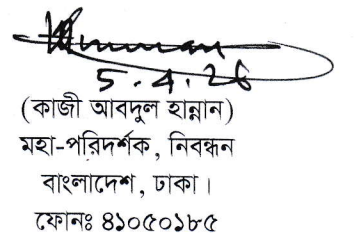 5.4.26
(কাজী আবদুল হান্নান)
মহা-পরিদর্শক, নিবন্ধন
বাংলাদেশ, ঢাকা।
ফোনঃ ৪১০৫০১৮৫